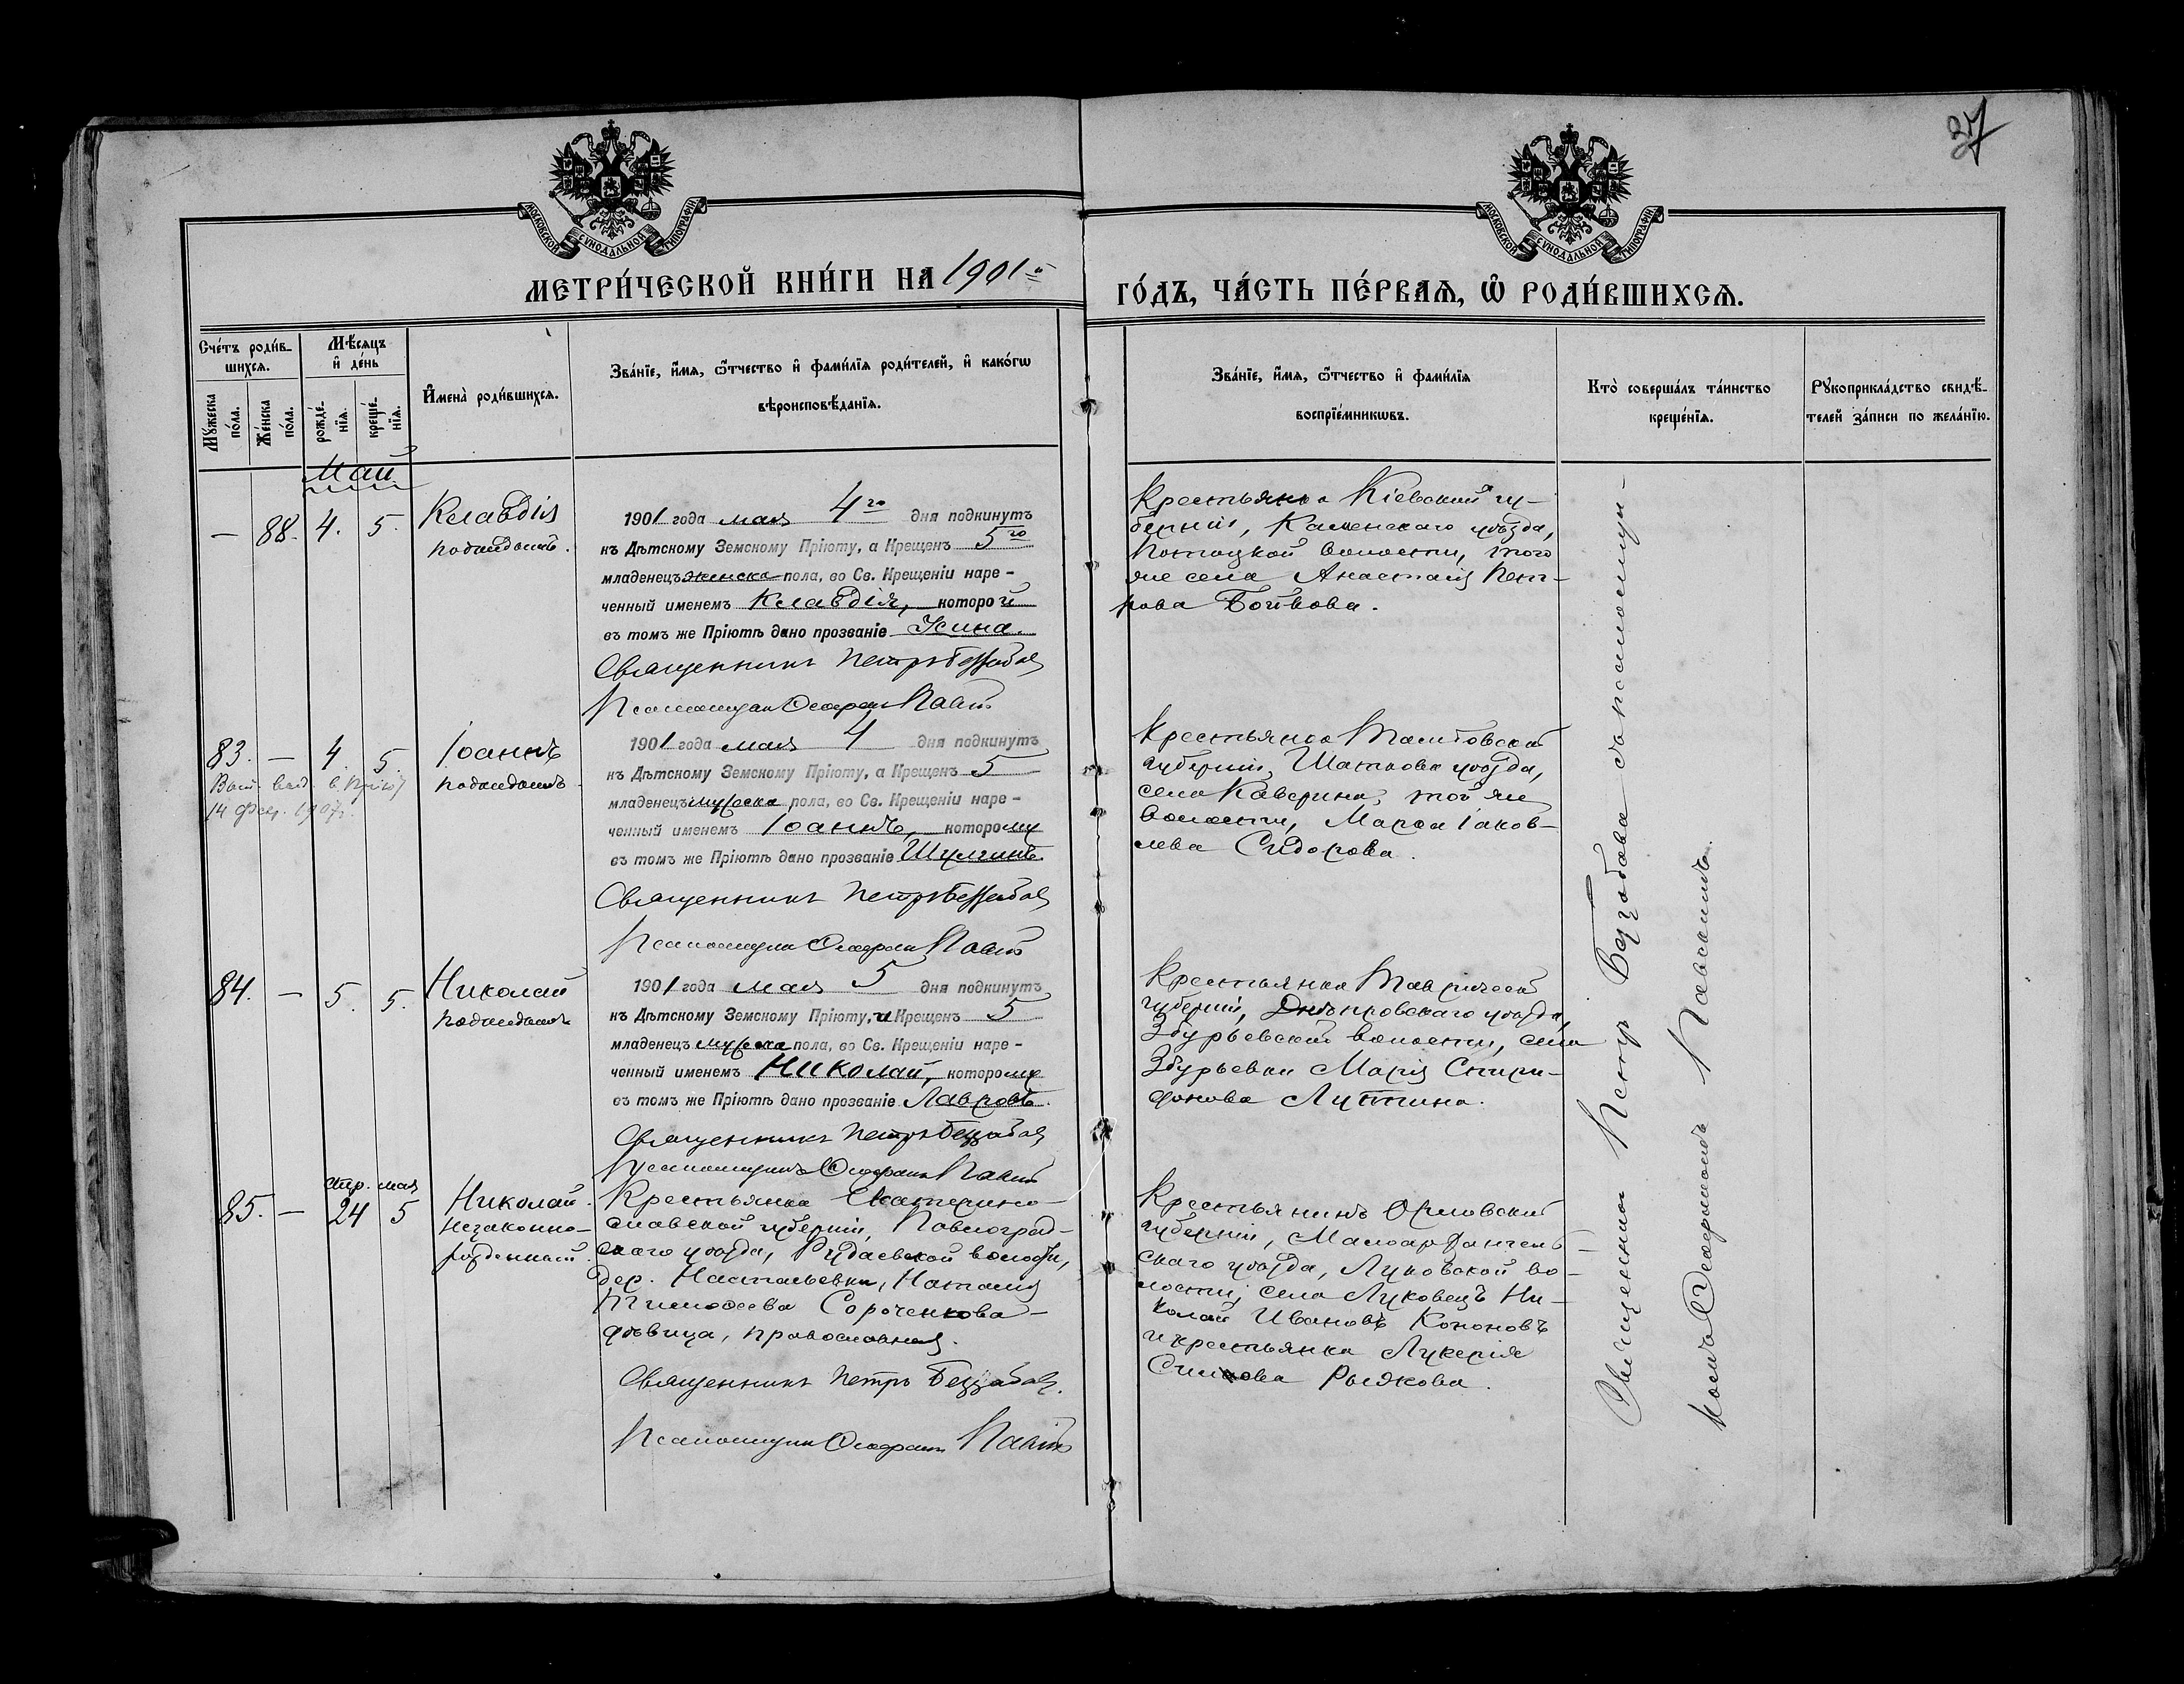 27
МОСКОВСКОЙ СУНОДАЛЬНОЙ ТИПОГРАФІИ
МОСКОВСКОЙ СУНОДАЛЬНОЙ ТИПОГРАФІИ
МЕТРИ́ЧЕСКОЙ КНИ́ГИ НА 1901 й
ГО́ДЪ, ЧА́СТЬ ПЕ́РВАЯ, Ѡ РОДИ́ВШИХСЯ.
Сче́тъ роди́в-
шихся.
Мѣ́сяцъ
и҆ де́нь
Мужеска
по́ла.
Же́нска
по́ла.
рожде́-
нїя.
креще́-
нїя.
И҆мена̀ роди́вшихся.
Зва́нїе, и҆́мя, ѻ҆́тчество и҆ фами́лїя роди́телей, и҆ како́гѡ
вѣроисповѣ́данїя.
Зва́нїе, и҆́мя, ѻ҆́тчество и҆ фами́лїя
воспрїе́мникѡвъ.
Кто̀ соверша́лъ та́инство
креще́нїя.
Рукоприкла́дство свидѣ́-
телей за́писи по жела́нїю.
Май
— 88. 4. 5.
Клавдія
подкидышъ.
1901 года мая 4го дня подкинутъ
къ Дѣтскому Земскому Пріюту, а Крещенъ 5го
младенецъ женска пола, во Св. Крещеніи наре-
ченный именемъ Клавдія, которой
въ томъ же Пріютѣ дано прозваніе
Священникъ Петръ
Псаломщикъ
Крестьянка Кіевской гу-
берніи, Каневскаго уѣзда,
Потоцкой волости, того
же села Анастасія Пет-
рова Бойкова.
83. — 4. 5.
14 1907г.
Іоаннъ
подкидышъ.
1901 года мая 4 дня подкинутъ
къ Дѣтскому Земскому Пріюту, а Крещенъ 5
младенецъ мужеска пола, во Св. Крещеніи наре-
ченный именемъ Іоаннъ, которому
въ томъ же Пріютѣ дано прозваніе Шулгинъ.
Священникъ Петръ
Псаломщикъ
Крестьянка Тамбовской
губерніи, Шацкова уѣзда,
села Каверина, той же
волости, Марѳа Іаков-
лева Сидорова.
84. — 5. 5.
Николай
подкидышъ
1901 года мая 5 дня подкинутъ
къ Дѣтскому Земскому Пріюту, и Крещенъ 5
младенецъ мужеска пола, во Св. Крещеніи наре-
ченный именемъ Николай, которому
въ томъ же Пріютѣ дано прозваніе Лавровъ.
Священникъ Петръ
Псаломщикъ
Крестьянка Таврической
губерніи, Днѣпровскаго уѣзда,
Збурьевской волости, села
Збурьевки Марія Спири-
донова
апр. мая
85. — 24 5
Николай
незаконно-
рожденный.
Крестьянка Екатерино-
славской губерніи, Павлоград-
скаго уѣзда, волости,
дер. Настасьевки, Наталія
Тимоѳеева Сороченкова
дѣвица, православная.
Священникъ Петръ
Псаломщикъ
Крестьянинъ Орловской
губерніи, Малоархангель-
скаго уѣзда, Луковской во-
лости, села Луковецъ Ни-
колай Ивановъ Кононовъ
и крестьянка Лукерія
Рыжкова.
Священникъ Петръ съ псаломщи-
комъ